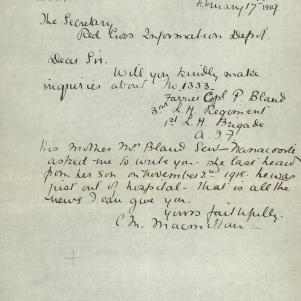 February 17th 1919
The Secretary
Red Cross Information Depot.
Dear Sir.
Will you kindly make
inquiries about No. 1333.
Farrier Copl P. Bland
3rd L.H Regiment
1st L.H. Brigade
A. I. F.
His Mother Mrs Bland Senr Naracoorte
asked me to write you - she last heard
from her son on November 2nd 1918. he was
just out of hospital - that is all the
news I can give you.
Yours faithfully.
C. M. Macmillan